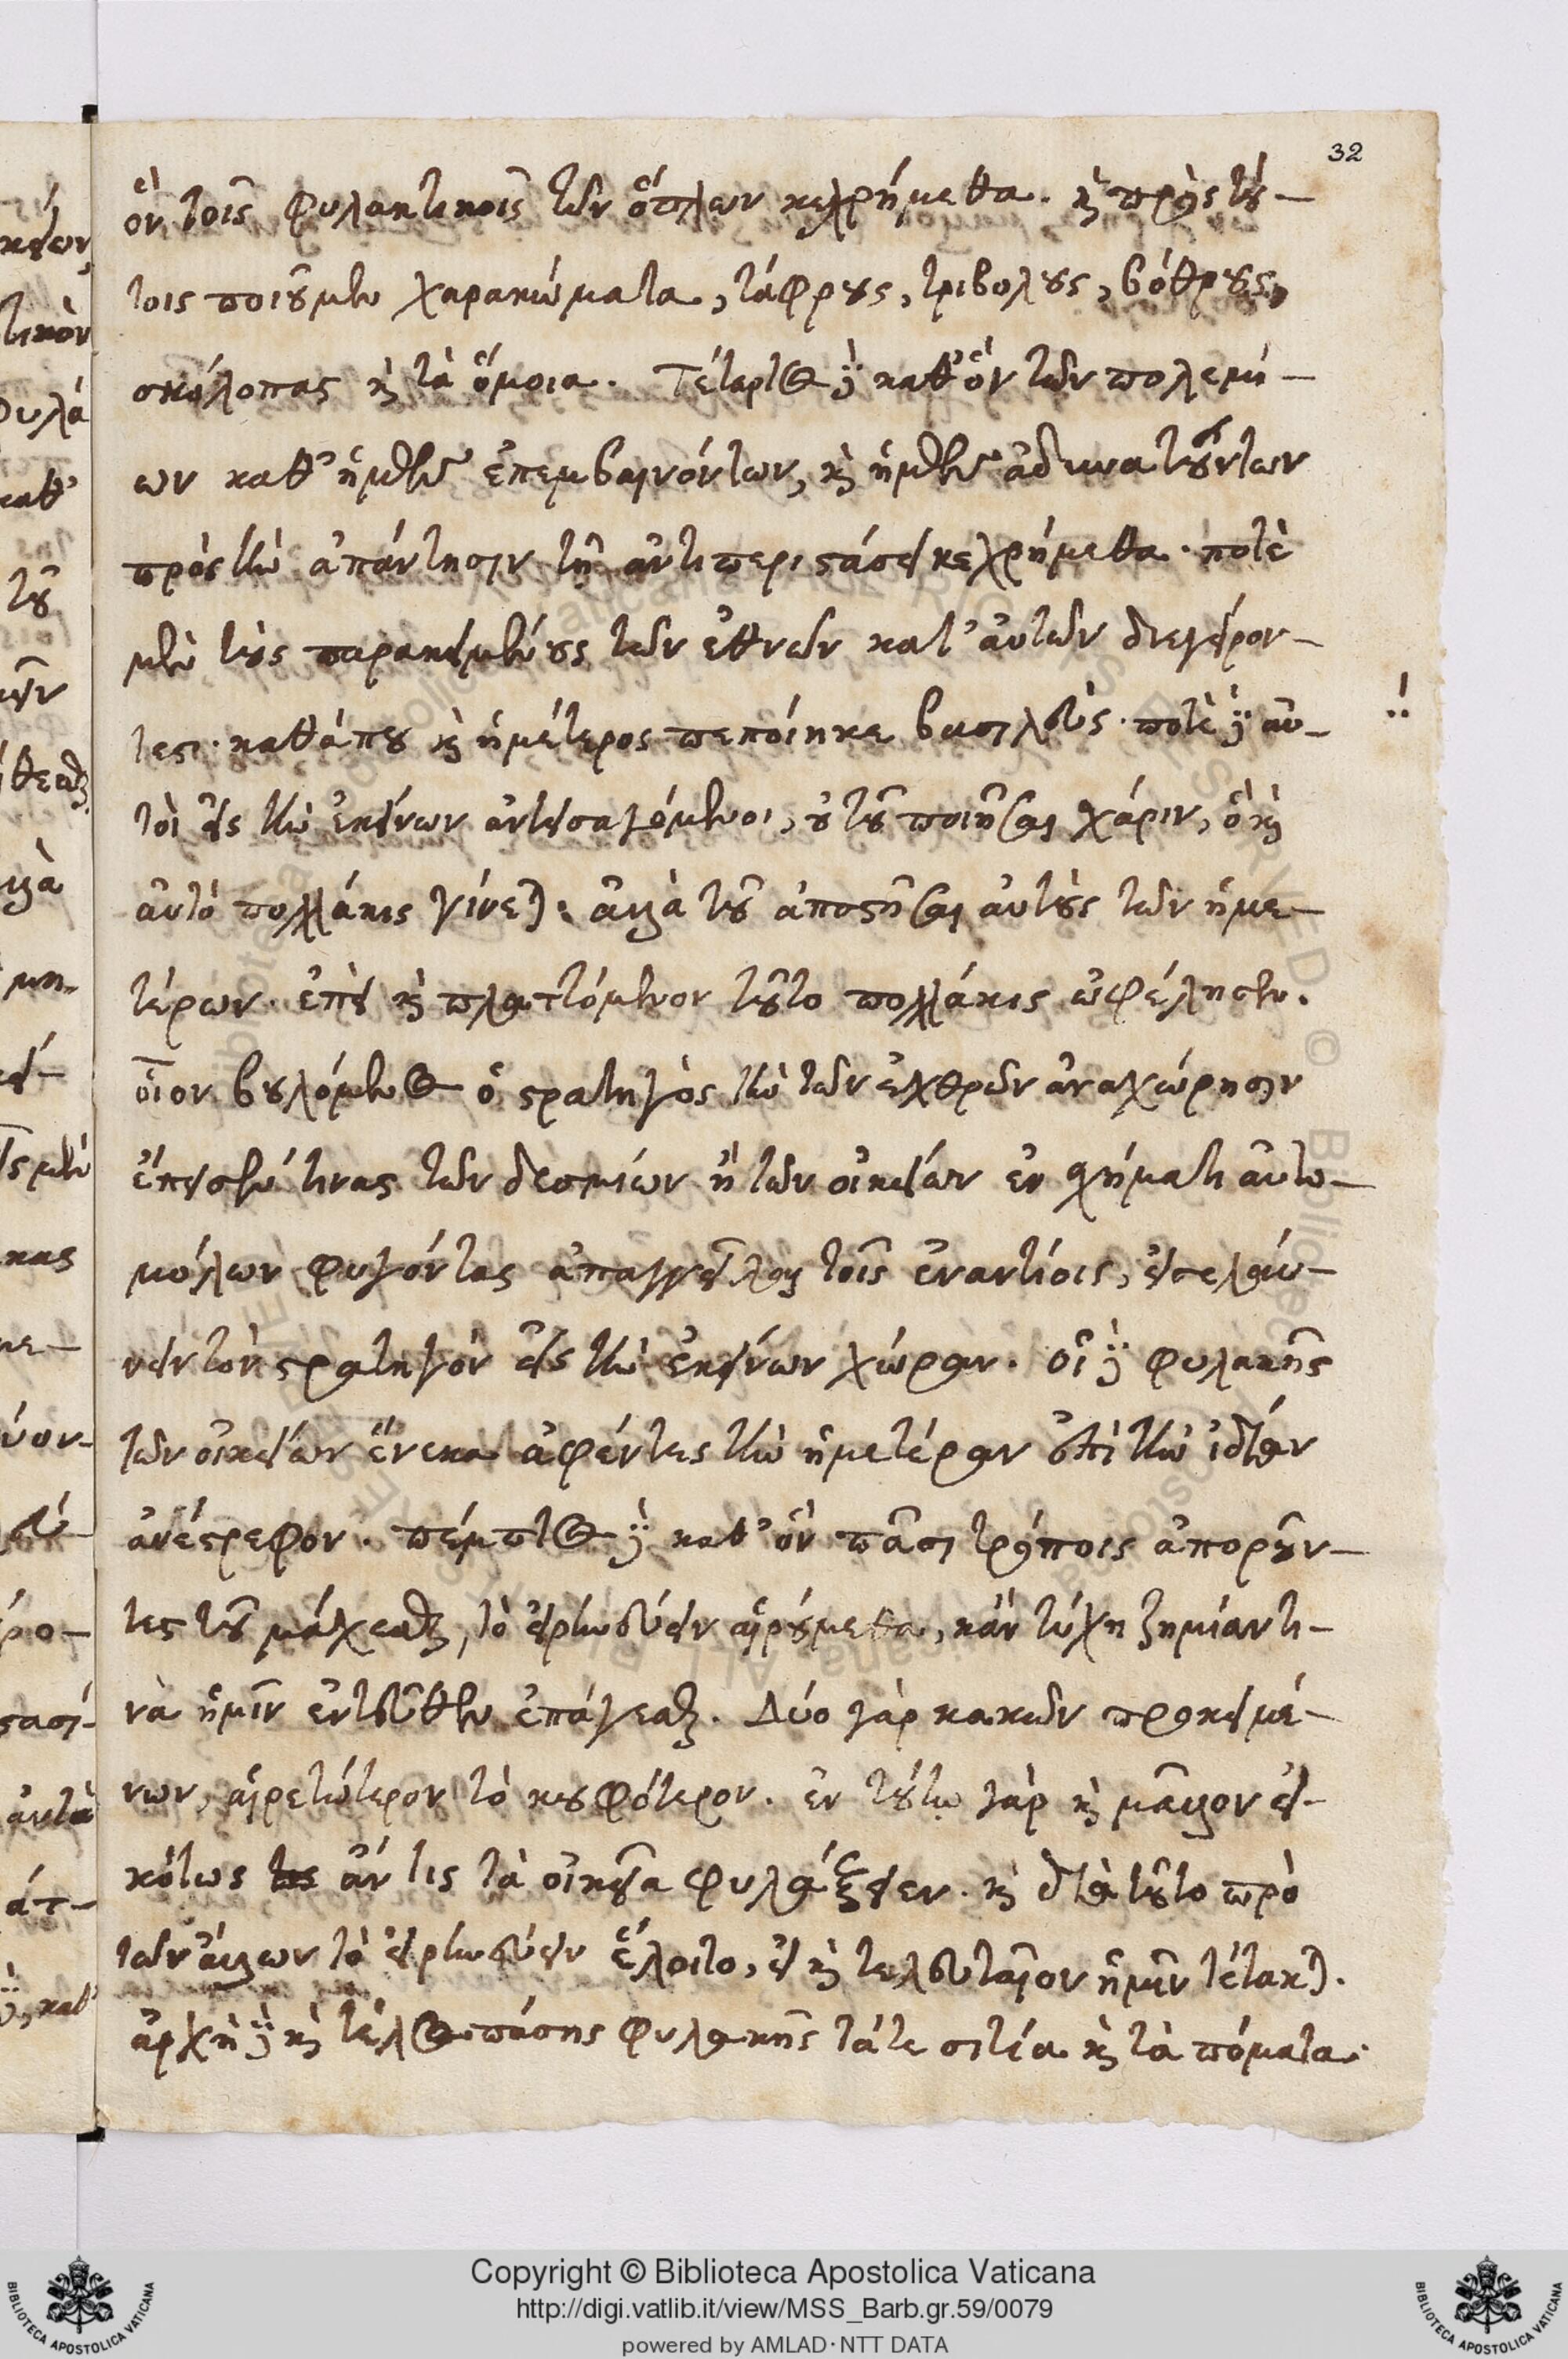 32
ὃν τοῖς φυλακτικοῖς τῶν ὅπλων κεχρήμεθα. καὶ πρὸς τού-
τοις ποιοῦμεν χαρακώματα, τάφρους, τριβόλους, βόθρους,
σκόλοπας καὶ τὰ ὅμοια. Τέταρτος δὲ καθ' ὃν τῶν πολεμί-
ων καθ' ἡμῶν ἐπεμβαινόντων, καὶ ἡμῶν ἀδυνατούντων
πρὸς τὴν ἀπάντησιν τῇ ἀντιπεριστάσει κεχρήμεθα. ποτὲ
μὲν τοὺς παρακειμένους τῶν ἐθνῶν κατ' αὐτῶν διεγείρον-
τες· καθάπερ καὶ ἡμέτερος πεποίηκε βασιλεύς. ποτὲ δὲ αὐ-
τοὶ εἰς τὴν ἐκείνων ἀντεισαγόμενοι, οὐ τοῦ ποιῆσαι χάριν, ὃ καὶ
αὐτὸ πολλάκις γίνεται· ἀλλὰ τοῦ ἀποστῆσαι αὐτοὺς τῶν ἡμε-
τέρων. ἐπεὶ καὶ πλαττόμενον τοῦτο πολλάκις ὠφέλησεν.
οἷον βουλόμενος ὁ στρατηγὸς τὴν τῶν ἐχθρῶν ἀναχώρησιν
ἔπεισέν τινας τῶν δεσμίων ἢ τῶν οἰκείων ἐν σχήματι αὐτο-
μόλων φυγόντας ἀπαγγεῖλαι τοῖς ἐναντίοις, εἰσελαύ-
νειν τὸν στρατηγὸν εἰς τὴν ἐκείνων χώραν. οἱ δὲ φυλακῆς
τῶν οἰκείων ἕνεκα ἀφέντες τὴν ἡμετέραν ἐπὶ τὴν ἰδίαν
ἀνέστρεφον. πέμπτος δὲ καθ' ὃν πᾶσι τρόποις ἀποροῦν-
τες τοῦ μάχεσθαι, τὸ εἰρηνεύειν αἱρούμεθα, κἂν τύχῃ ζημίαν τι-
νὰ ἡμῖν ἐντεῦθεν ἐπάγεσθαι. Δύο γὰρ κακῶν προκειμέ-
νων, αἱρετώτερον τὸ κουφότερον. ἐν τούτῳ γὰρ καὶ μᾶλλον εἰ-
κότως ἄν τις τὰ οἰκεῖα φυλάξειεν. καὶ διὰ τοῦτο πρὸ
τῶν ἄλλων τὸ εἰρηνεύειν ἕλοιτο, εἰ καὶ τελευταῖον ἡμῖν τέτακται.
ἀρχὴ δὲ καὶ τέλος πάσης φυλακῆς τά τε σιτία καὶ τὰ πόματα.
Copyright © Biblioteca Apostolica Vaticana
http://digi.vatlib.it/view/MSS_Barb.gr.59/0079
powered by AMLAD·NTT DATA
BIBLIOTECA APOSTOLICA VATICANA
BIBLIOTECA APOSTOLICA VATICANA